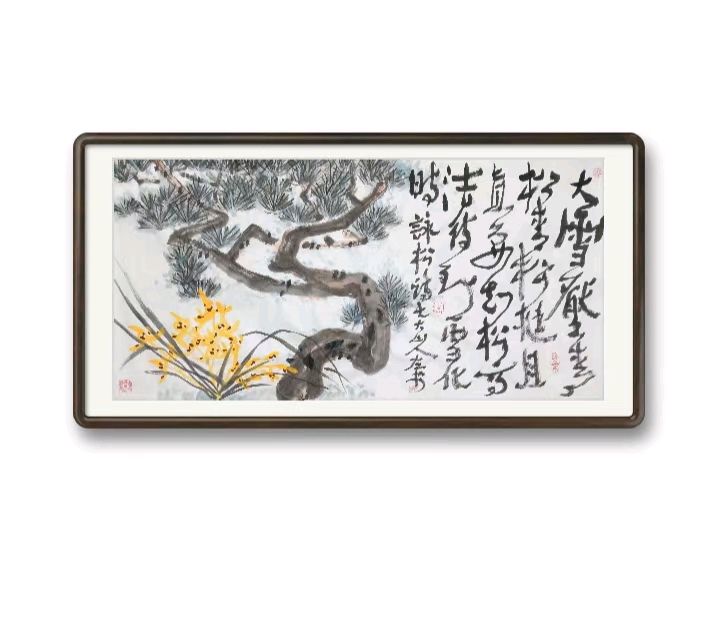 大雪壓青
松青松挺且
直要知松高
洁待到雪化
時詠松詩大山人